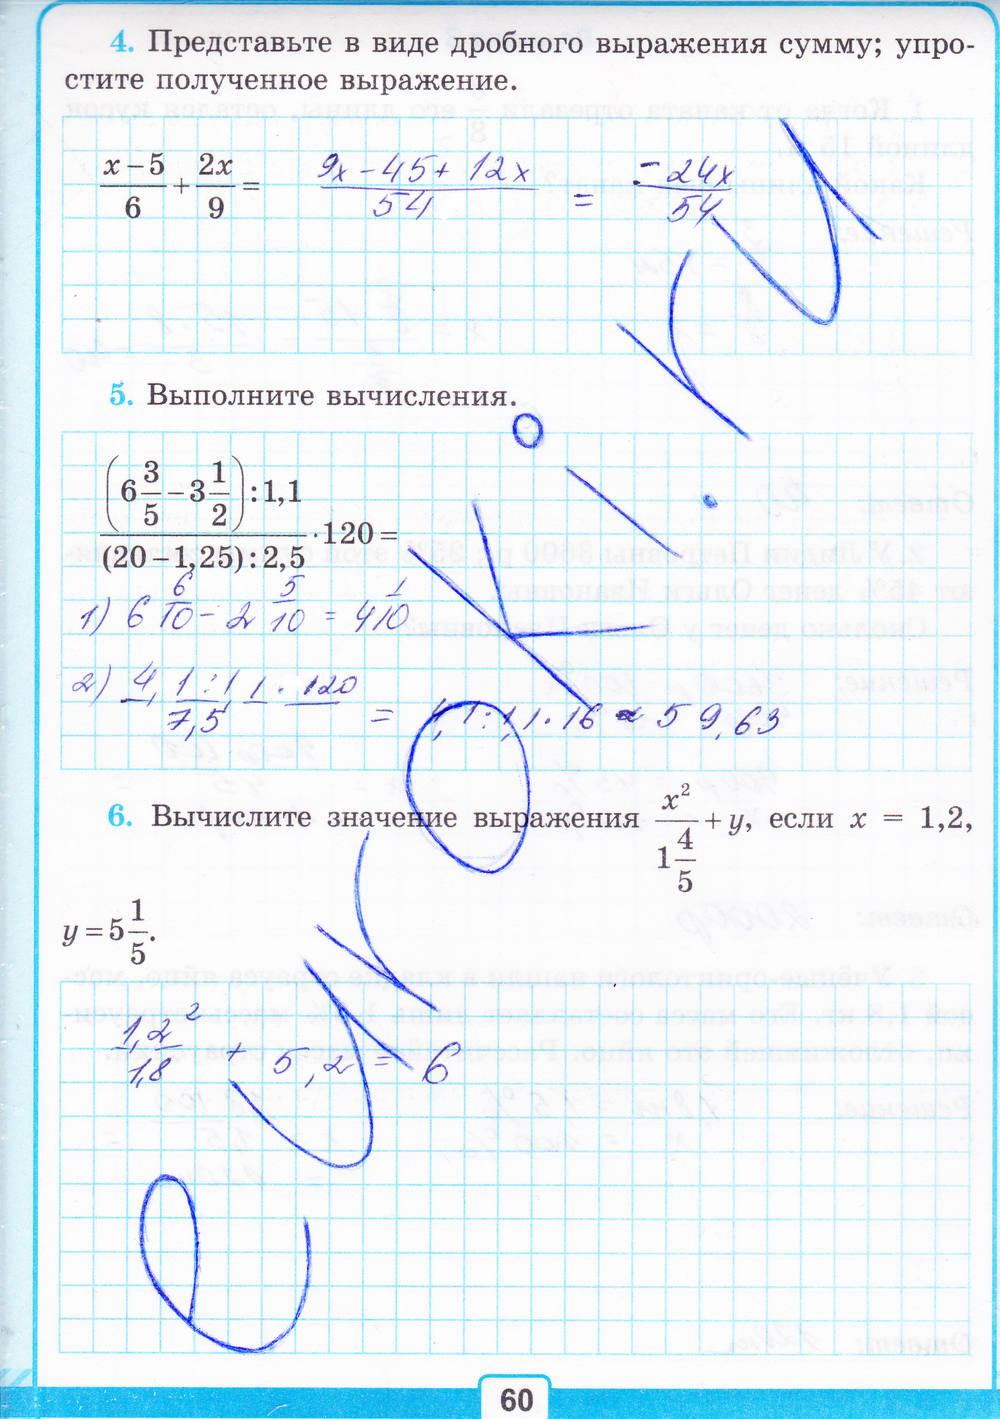 4. Представьте в виде дробного выражения сумму; упро-
стите полученное выражение.
(x − 5)/6 + 2x/9 = (9x − 45 + 12x)/54 = −24x/54
5. Выполните вычисления.
((6 3/5 − 3 1/2) : 1,1)/((20 − 1,25) : 2,5) · 120 =
1) 6 6/10 − 2 5/10 = 4 1/10
2) (4,1 : 1,1 · 120)/7,5 = 4,1 : 1,1 · 16 ≈ 59,63
6. Вычислите значение выражения x²/(1 4/5) + y, если x = 1,2,
y = 5 1/5.
1,2²/1,8 + 5,2 = 6
eurokI.ru
60